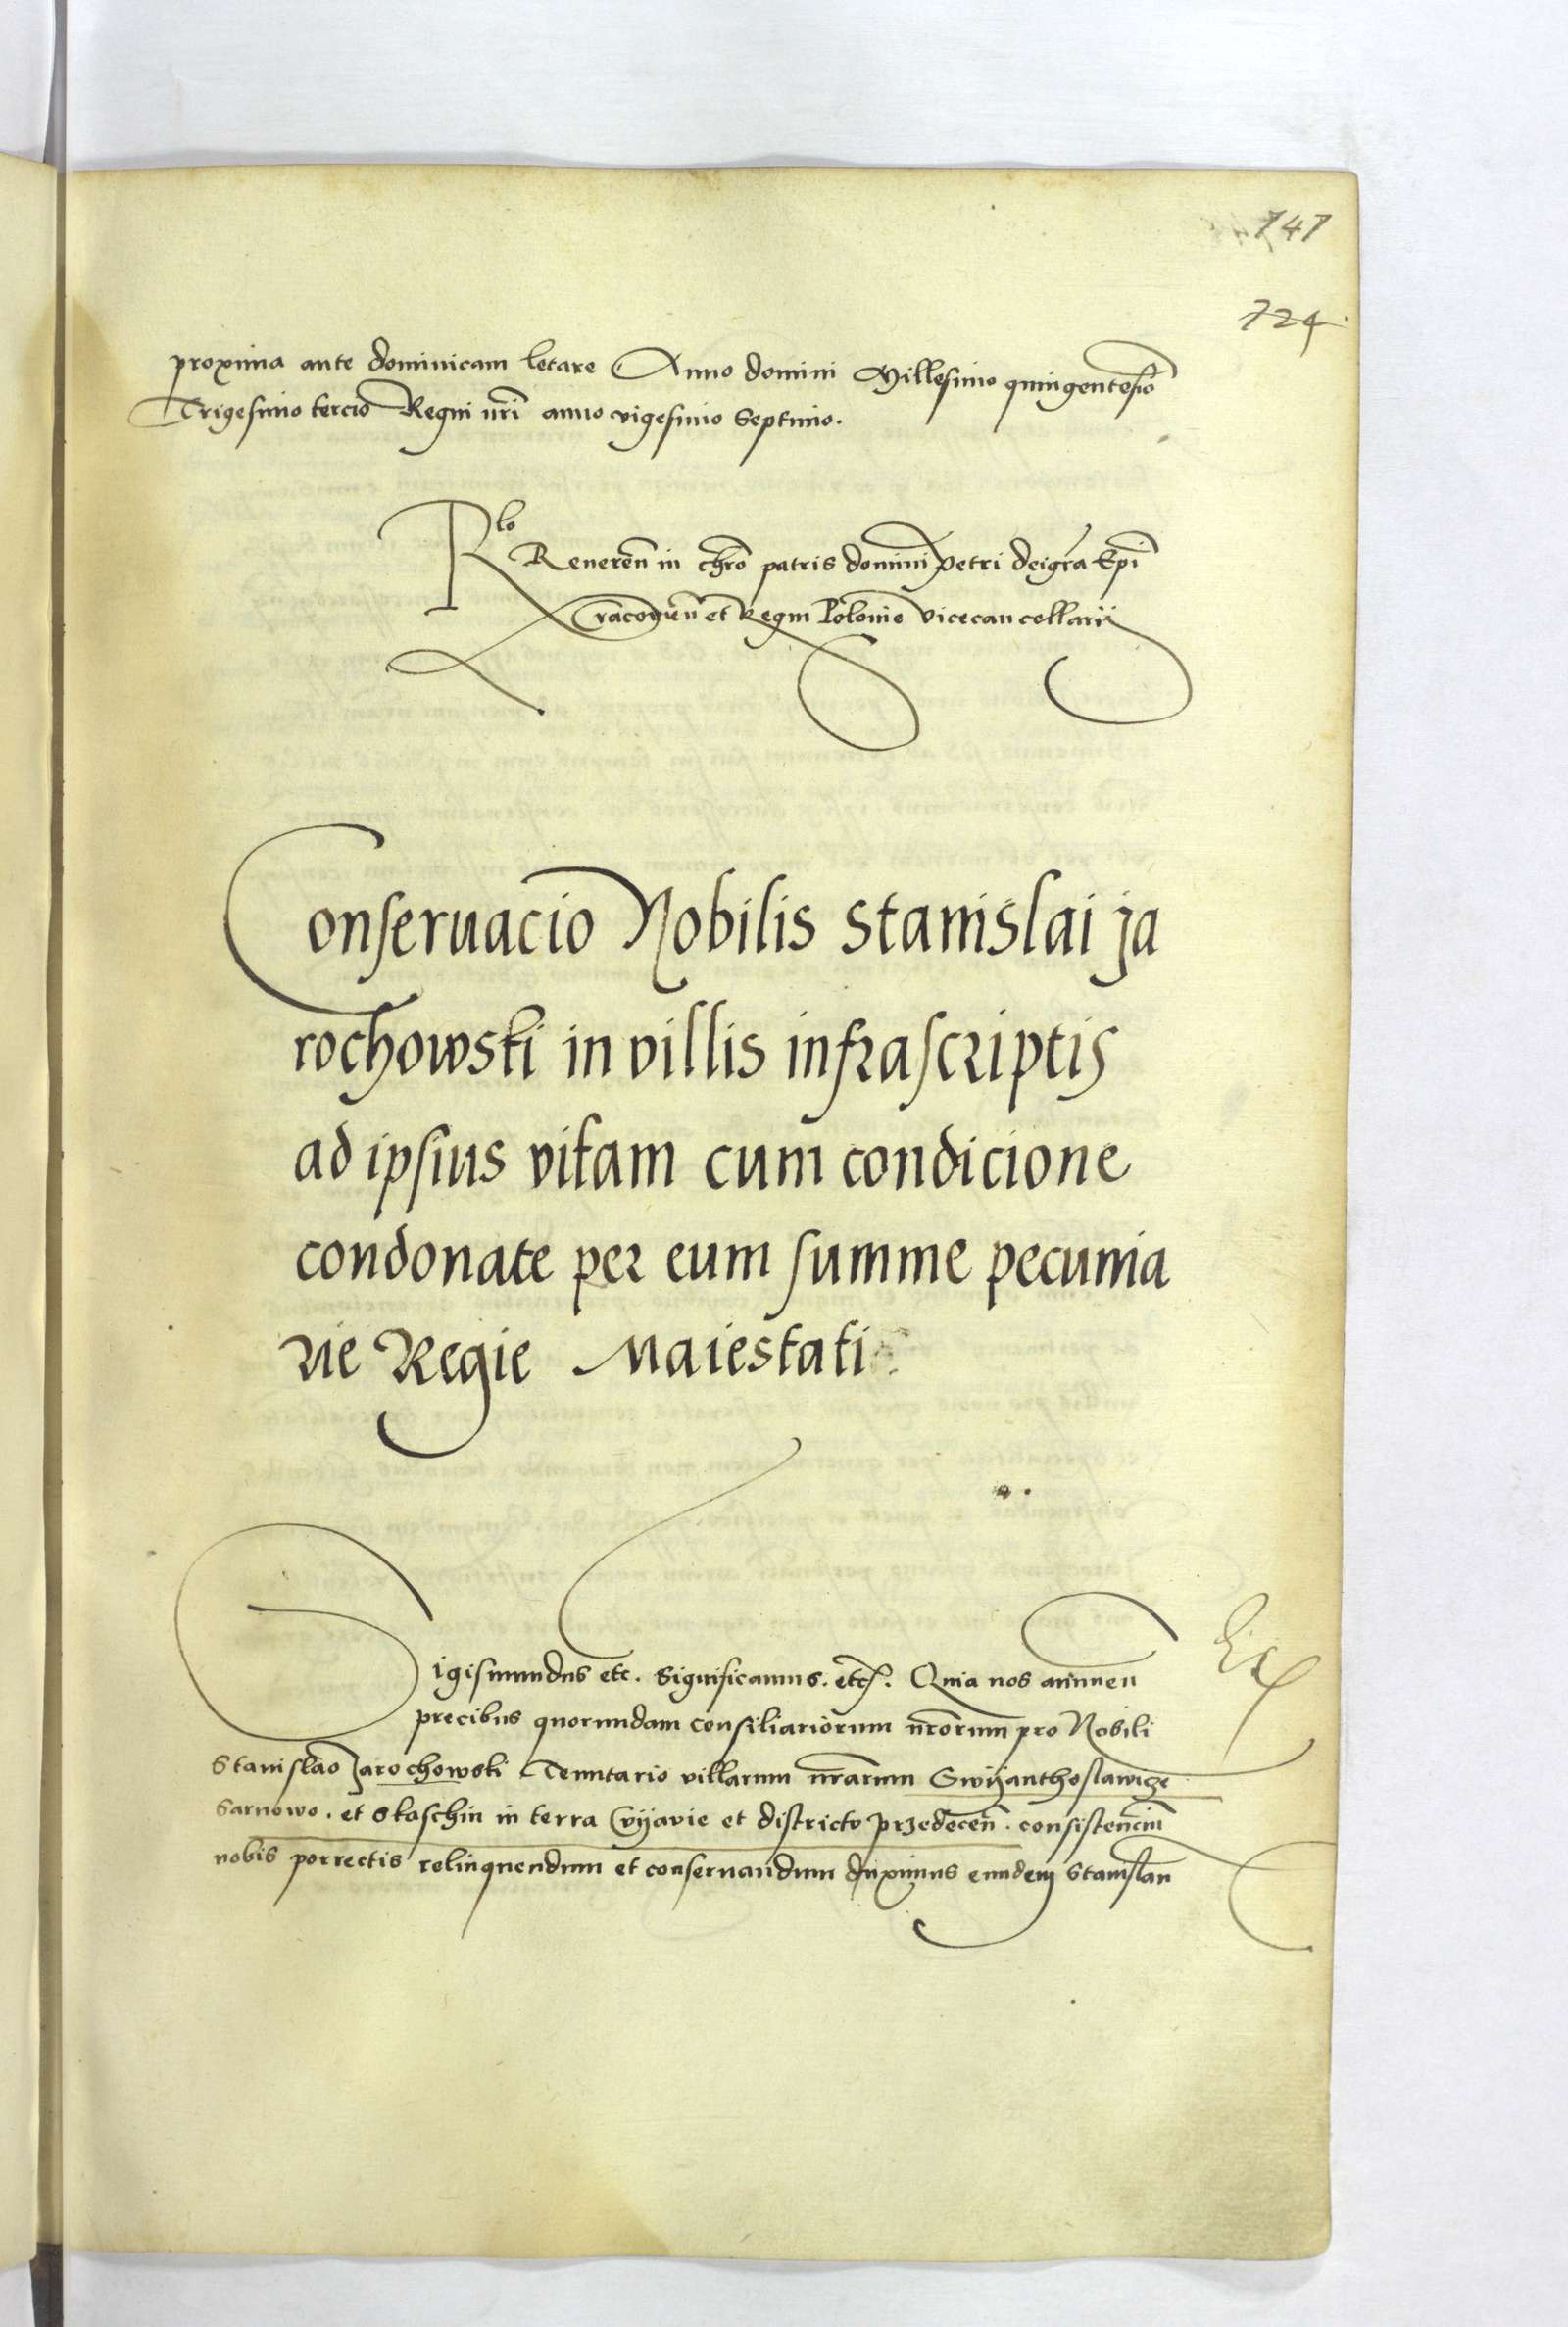 741
724
proxima ante dominicam letare Anno domini Millesimo quingentesio
Trigesimo tercio Regni nri anno vigesimo septimo.
Rlo Reueren in chro patris domini Petri dei gra Epi
Cracouien et Regni Polonie vicecancellarij
Conseruacio Nobilis Stanislai Ja
rochowski in villis infrascriptis
ad ipsius vitam cum condicione
condonate per eum summe pecunia
rie Regie Maiestati
Sigismundus etc. Significamus. etc. Quia nos annuen
precibus quorundam consiliariorum nrorum pro Nobili
Stanislao Jarochowski Tenutario villarum nrarum Swyanthoslawicze
Sarnowo. et Skaschin in terra Cuyavie et districto Przedecen. consistencium
nobis porrectis relinquendum et conseruandum duximus eundem Stanislau